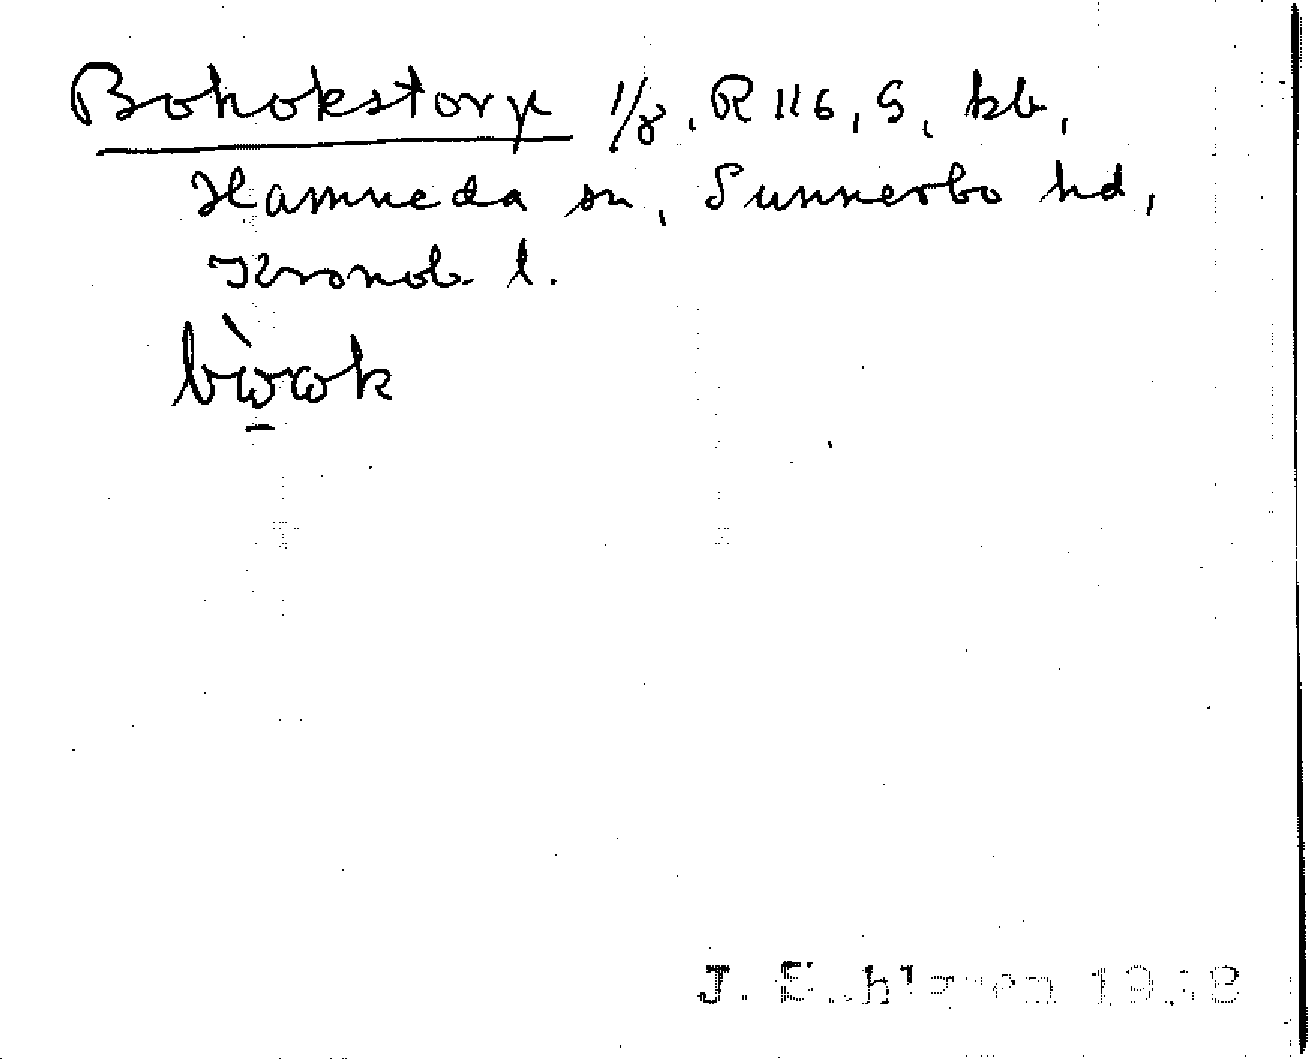 Bohokstorp 1/8, R 116, S, kb,
Hamneda sn, Sunnerbo hd,
Kronob. l.
bὼωk
J. Sahlgren 19